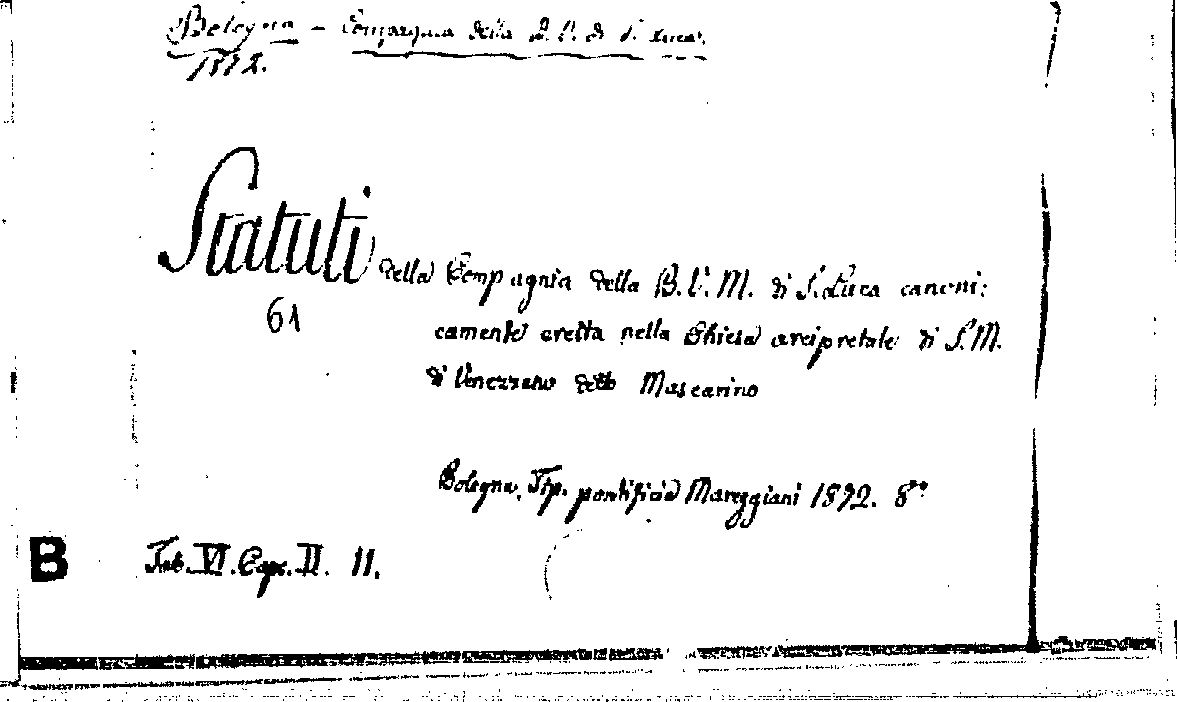 Bologna - Compagnia della B. V. di S. Luca.
1872.
Statuti della Compagnia della B. V. M. di S. Luca canoni:
61
camente eretta nella Chiesa arcipretale di S. M.
di Venezzano detto Mascarino
Bologna, Tip. pontificia Mareggiani 1872. 8°
B Tab. VI. Caps. II. 11.